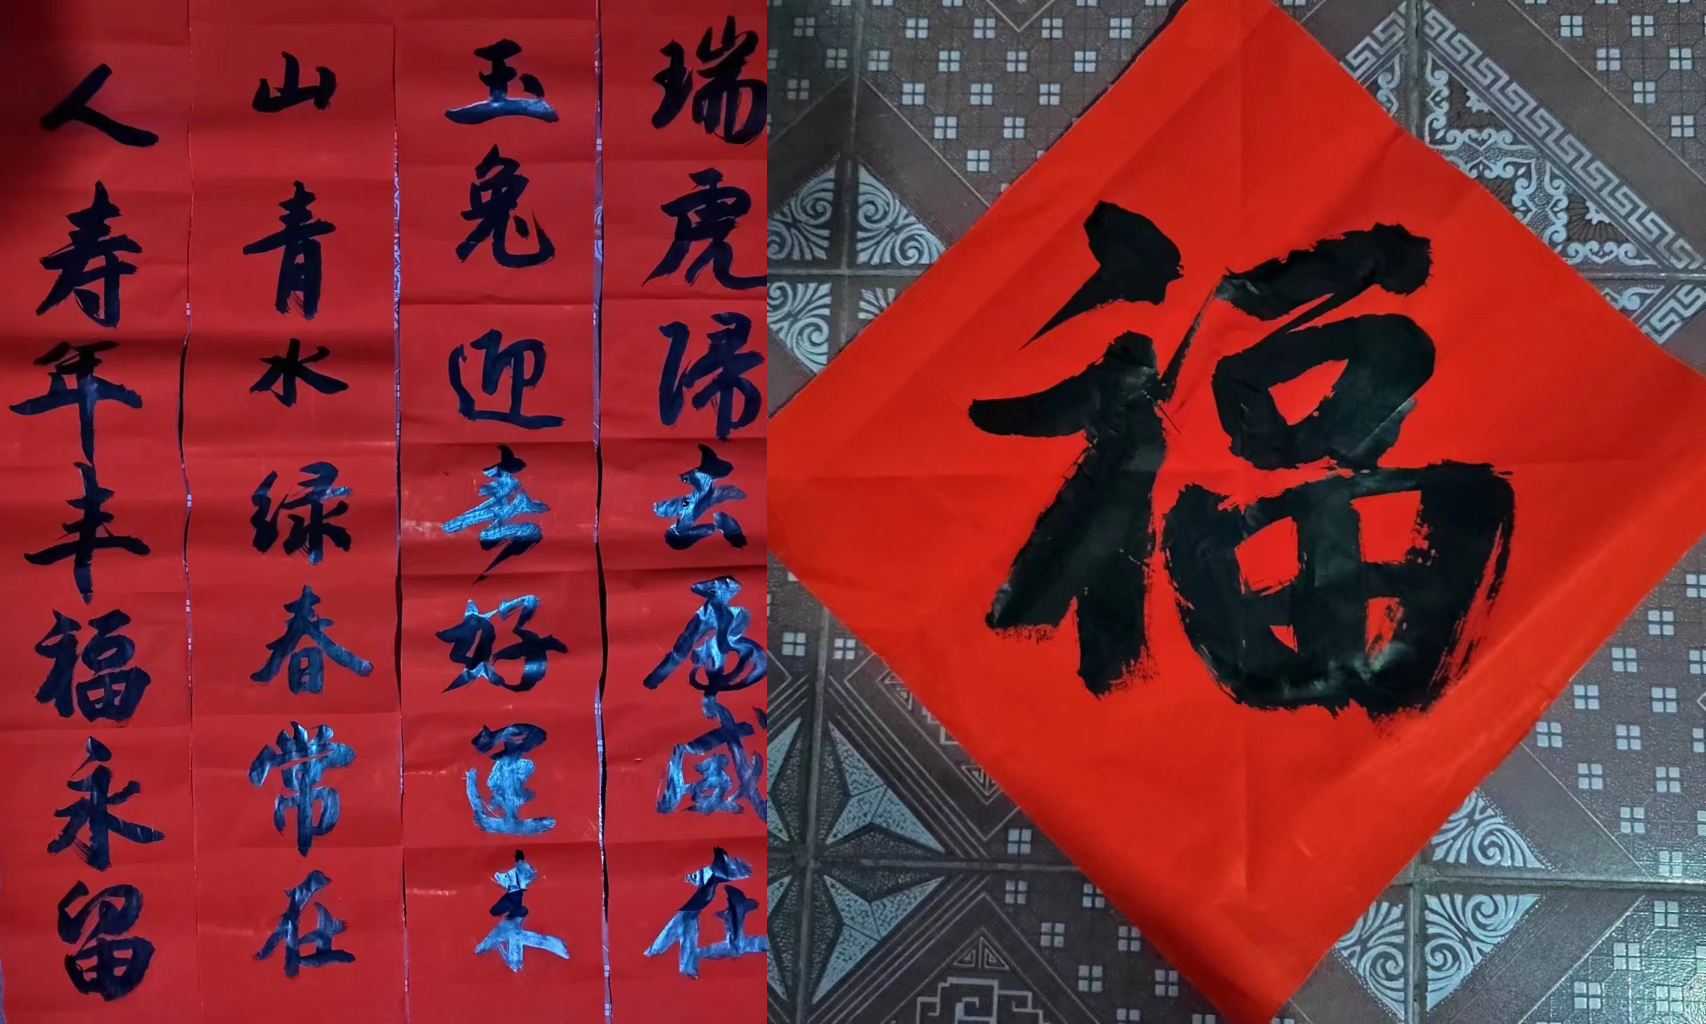 瑞虎帰去威在
玉兔迎春好運来
山青水绿春常在
人寿年丰福永留
福